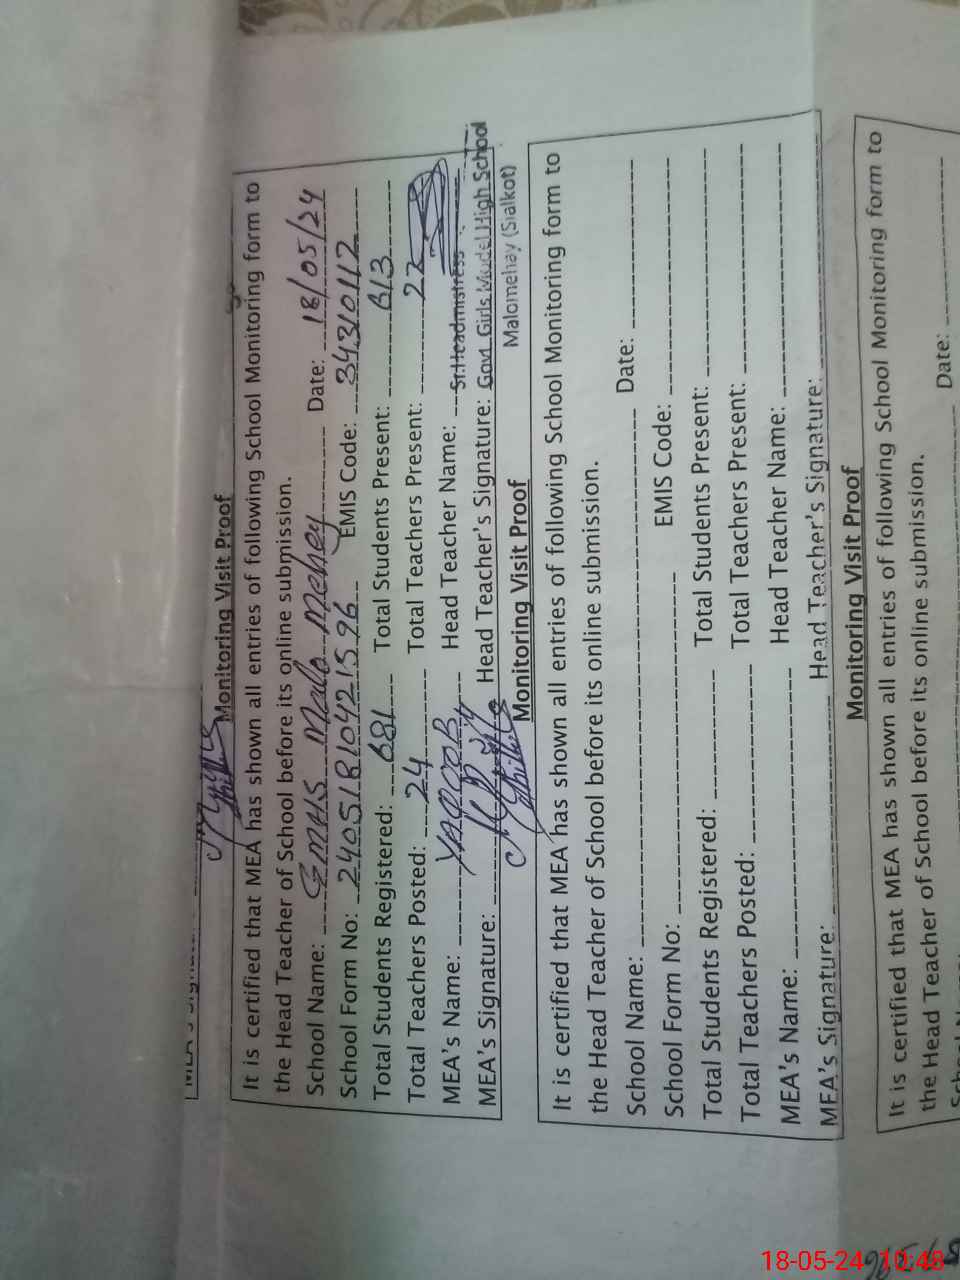 Monitoring Visit Proof
It is certified that MEA has shown all entries of following School Monitoring form to
the Head Teacher of School before its online submission.
School Name: GMHS Malo Mehey Date: 18/05/24
School Form No: 24051810421596 EMIS Code: 34310112
Total Students Registered: 681 Total Students Present: 613
Total Teachers Posted: 24 Total Teachers Present: 22
MEA's Name: YAQOOB Head Teacher Name: Sr.Headmistress
MEA's Signature: Head Teacher's Signature: Govt. Girls Model High School
Malomehay (Sialkot)
Monitoring Visit Proof
It is certified that MEA has shown all entries of following School Monitoring form to
the Head Teacher of School before its online submission.
School Name: Date:
School Form No: EMIS Code:
Total Students Registered: Total Students Present:
Total Teachers Posted: Total Teachers Present:
MEA's Name: Head Teacher Name:
MEA's Signature: Head Teacher's Signature:
Monitoring Visit Proof
It is certified that MEA has shown all entries of following School Monitoring form to
the Head Teacher of School before its online submission.
Date:
18-05-24 10:48